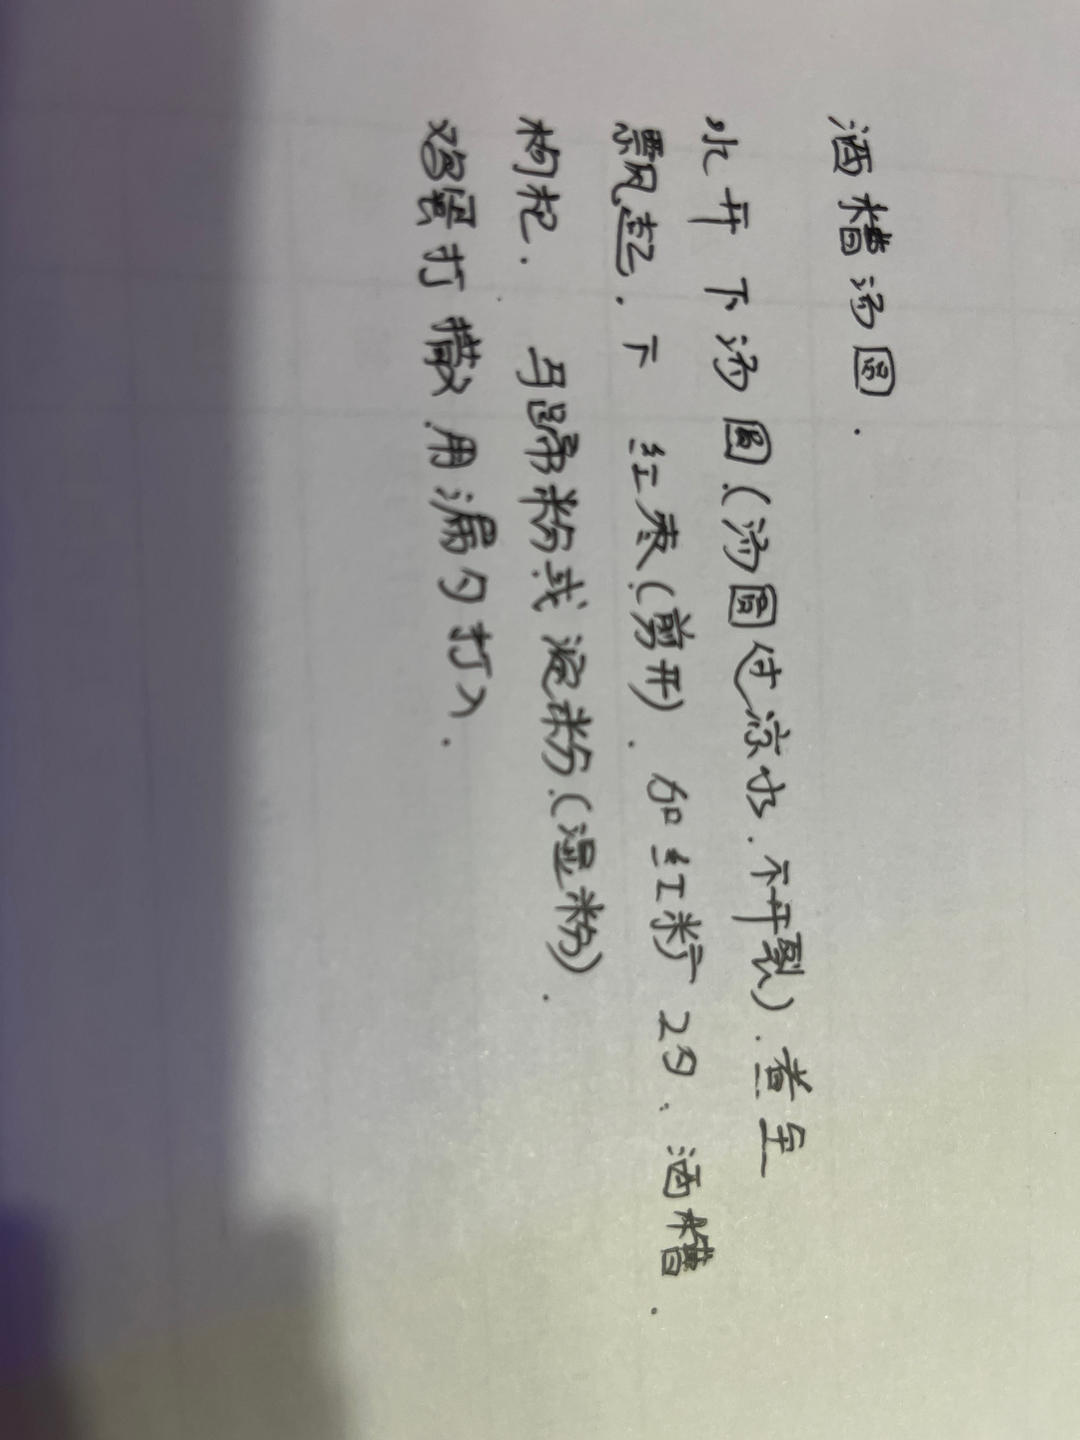 酒糟汤圆.
水开下汤圆(汤圆过凉水.不开裂).煮至
飘起.下 红枣(剪开). 加红糖2勺.酒糟.
枸杞. 马蹄粉或淀粉.(湿粉).
鸡蛋打散.用漏勺打入.